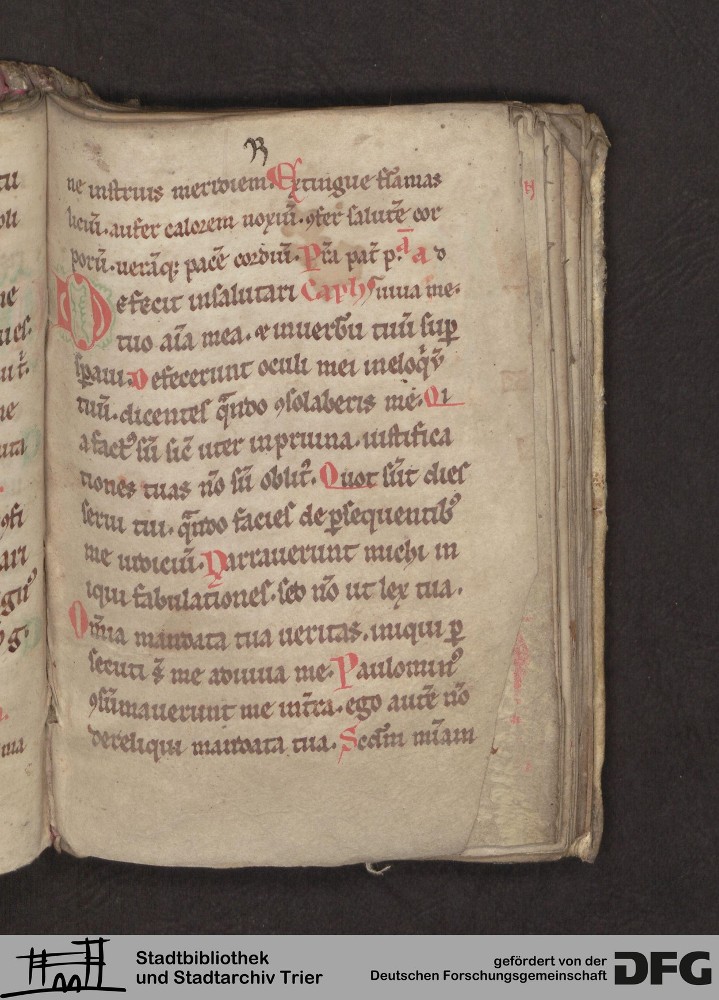 R
ne instruis meridiem. Extingue flamas
liciū. aufer calorem noxiū. ꝯfer salutē cor
porū. uerāq; pacē cordiū. Pr̄a pat̄ p. a d
Defecit insalutari Caph suiua me.
tuo aīa mea. ⁊ inuerbū tuū sup̱
sp̱aui. Defecerunt oculi mei ineloq̄ū
tuū. dicentes q̄ndo ꝯsolaberis me. Qi
a fact᷒ sū sic̄ uter inpruina. iustifica
tiones tuas nō sū oblit᷒. Quot sūt dies
serui tui. q̄ndo facies de p̱sequentib᷒
me iudiciū. Narrauerunt michi in
iqui fabulationes. sed nō ut lex tua.
Om̄ia mandata tua ueritas. iniqui p̱
secuti s̄ me adiuua me. Paulominᷤ
ꝯsūmauerunt me int̄ra. ego autē nō
dereliqui mandata tua. Scd̄m mīam
Stadtbibliothek
und Stadtarchiv Trier
gefördert von der
Deutschen Forschungsgemeinschaft DFG